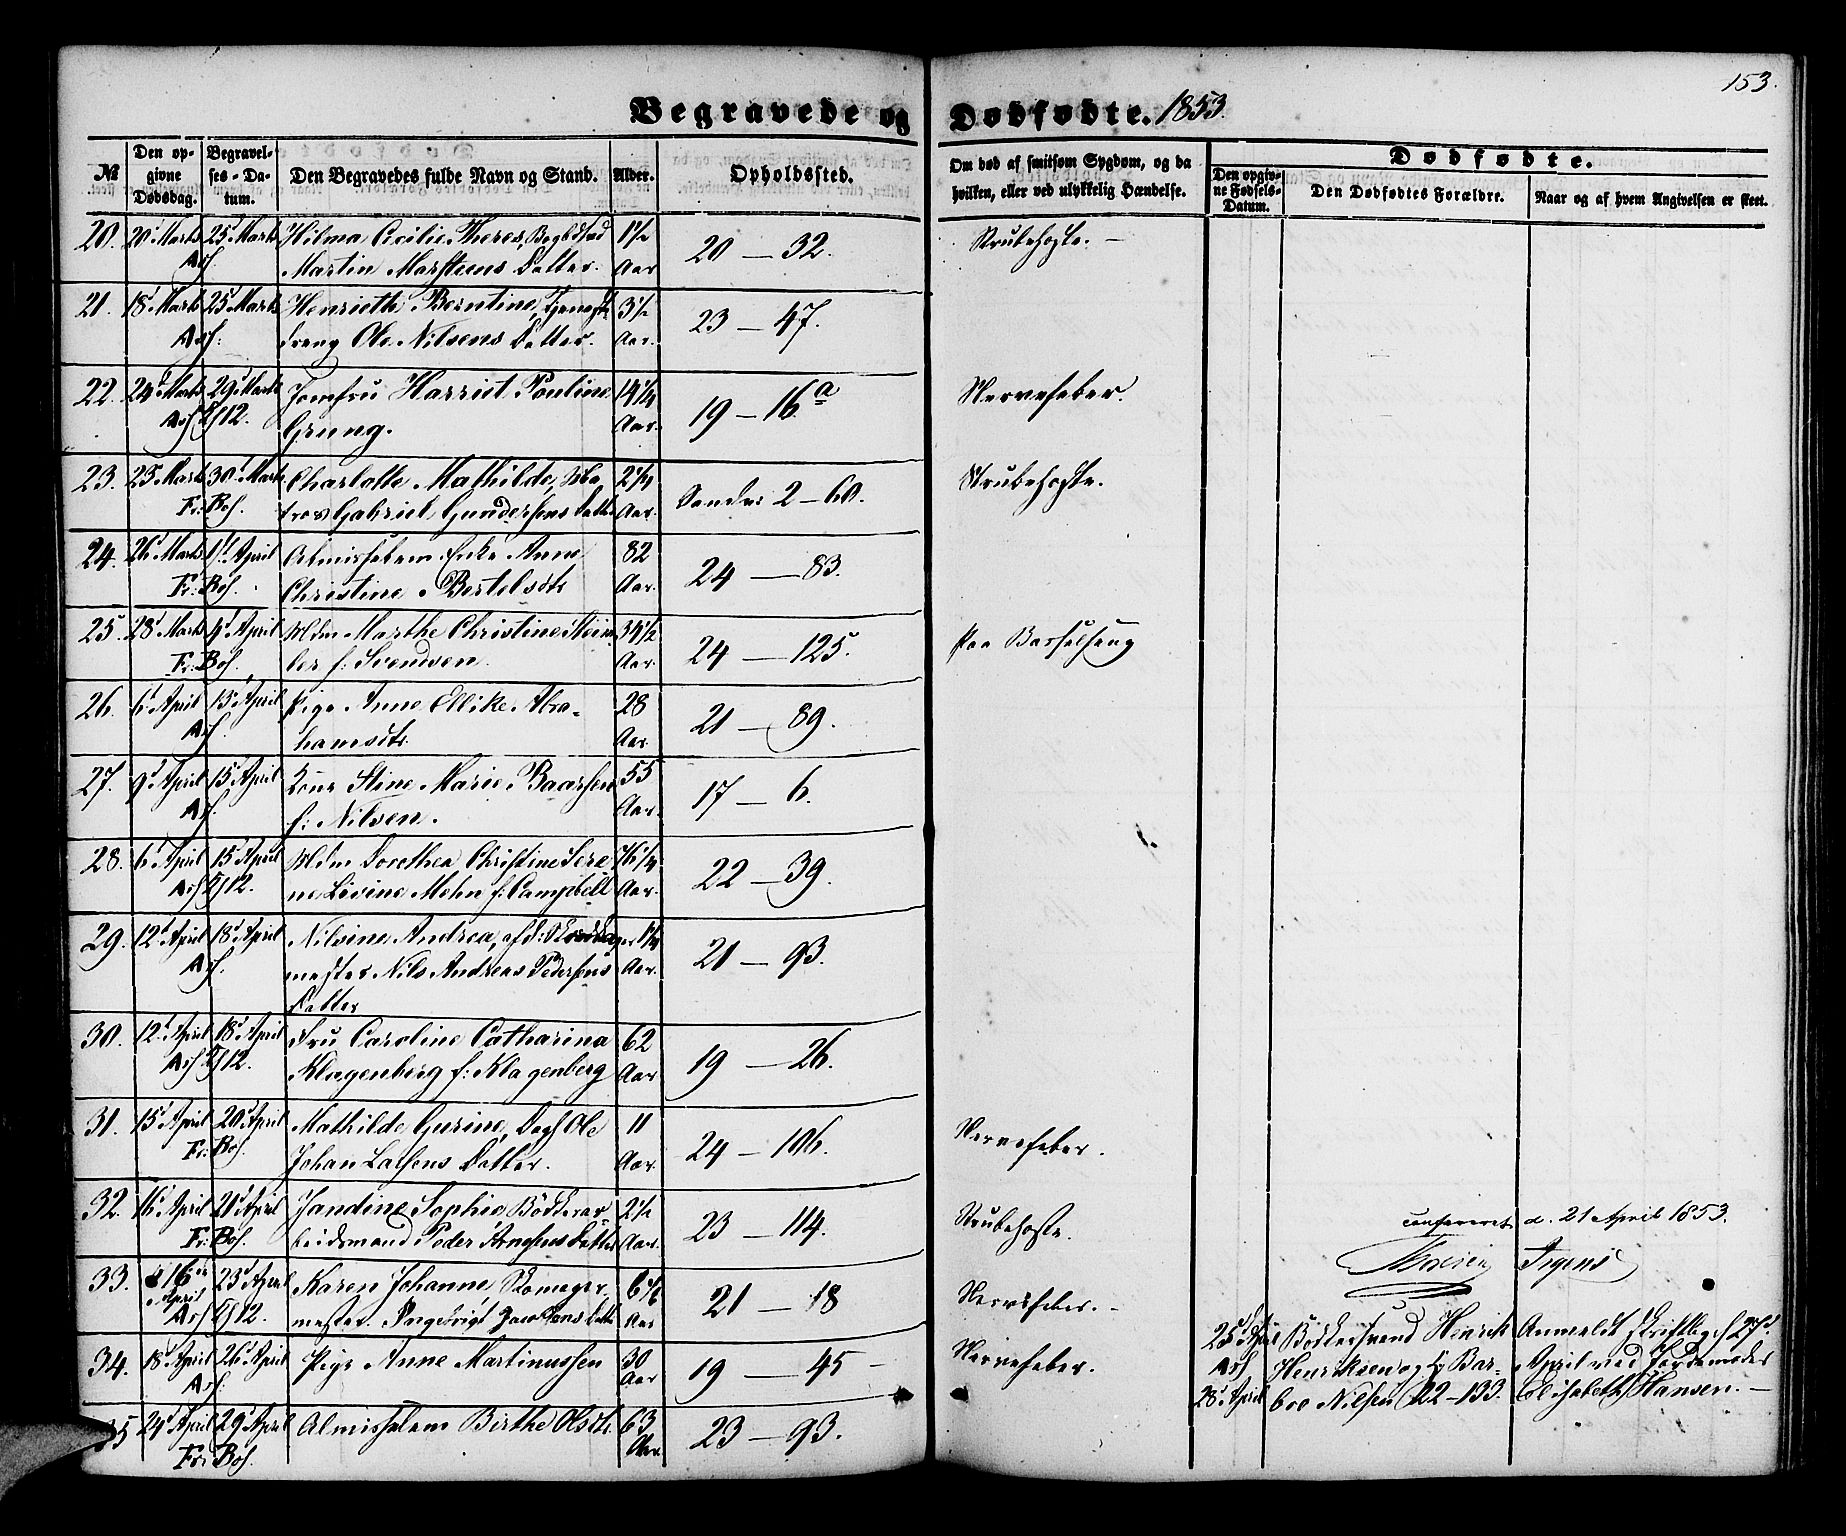 153.
Begravede og Dødfødte. 1853.
№ Den opgivne Dødsdag. Begravelses-Datum. Den Begravedes fulde Navn og Stand. Alder. Opholdssted. Om død af smitsom Sygdom, og da hvilken, eller ved ulykkelig Hændelse.
Dødfødte.
Den opgivne Fødsels-Datum. Den Dødfødtes Forældre. Naar og af hvem Angivelsen er skeet.
20. 20 Marts 25 Marts Hilma Cecilie Theres, 1½ 20 — 32. Strubehoste. —
Martin Marstens Datter. Aar
21. 18 Marts 25 Marts Henriette Berntine, Tjeneste 3½ 23 — 47.
dreng Ole Nilsens Datter. Aar.
22. 24 Marts 29 Marts Jomfru Harriet Pouline 14¼ 19 — 16 a Nervefeber.
Grung. Aar.
23. 25 Marts 30 Marts Charlotte Mathilde, Ma 2¼ Sandv: 2 — 60. Strubehoste.
Fr: Boh. tros Gabriel Gundersens Datter Aar.
24. 26 Marts 1 April Almisselem Enke Anne 82 24 — 83.
Fr: Boh. Christine Bertelsdtr Aar.
25. 28 Marts 4 April Mdm Marthe Christine 34½ 24 — 125. Paa Barselseng
Fr: Boh. f: Svendsen. Aar.
26. 6 April 13 April Pige Anne Ellike Abra- 28 21 — 89.
hamsdtr. Aar.
27. 9 April 15 April Kone Stine Marie Baarsen 55 17 — 6.
f: Nilsen. Aar.
28. 6 April 15 April Mdm Dorothea Christine Sere 76¼ 22 — 39.
ne Livine Mohn f: Campbell Aar.
29. 12 April 18 April Nilsine Andrea, afd: 1¼ 21 — 93.
mester Nils Andreas Pedersens Aar.
Datter
30. 12 April 18 April Fru Caroline Catharina 62 19 — 26.
Klagenberg f: Klagenberg Aar.
31. 15 April 20 April Mathilde Gurine, Dags Ole 11 24 — 106. Nervefeber.
Fr: Boh. Johan Larsens Datter. Aar.
32. 16 April 20 April Jandine Sophie, Bødkerar- 2½ 23 — 114. Strubehoste.
Fr: Boh. beidsmand Peder Arnesens Datter Aar.
conferert d. 21 April 1853.
Irgens
33. 16 April 23 April Karen Johanne Skomager 21 — 18 Nervefeber. —
mester Ingebrigt Jacobsens Datter Aar
34. 18 April 26 April Pige Anne Martinussen 30 19 — 45 — Nervefeber.
Aar
25 April Bødkersvend Henrik Anmeldt skriftlig d 27
Henriksen og Bar- April ved Jordemoder
28 April bro Nilsen 22-133. Elisabeth Hansen. —
35 24 April 29 April Almisselem Birthe Olsdtr. 63 23 — 93.
Fr: Boh. Aar.